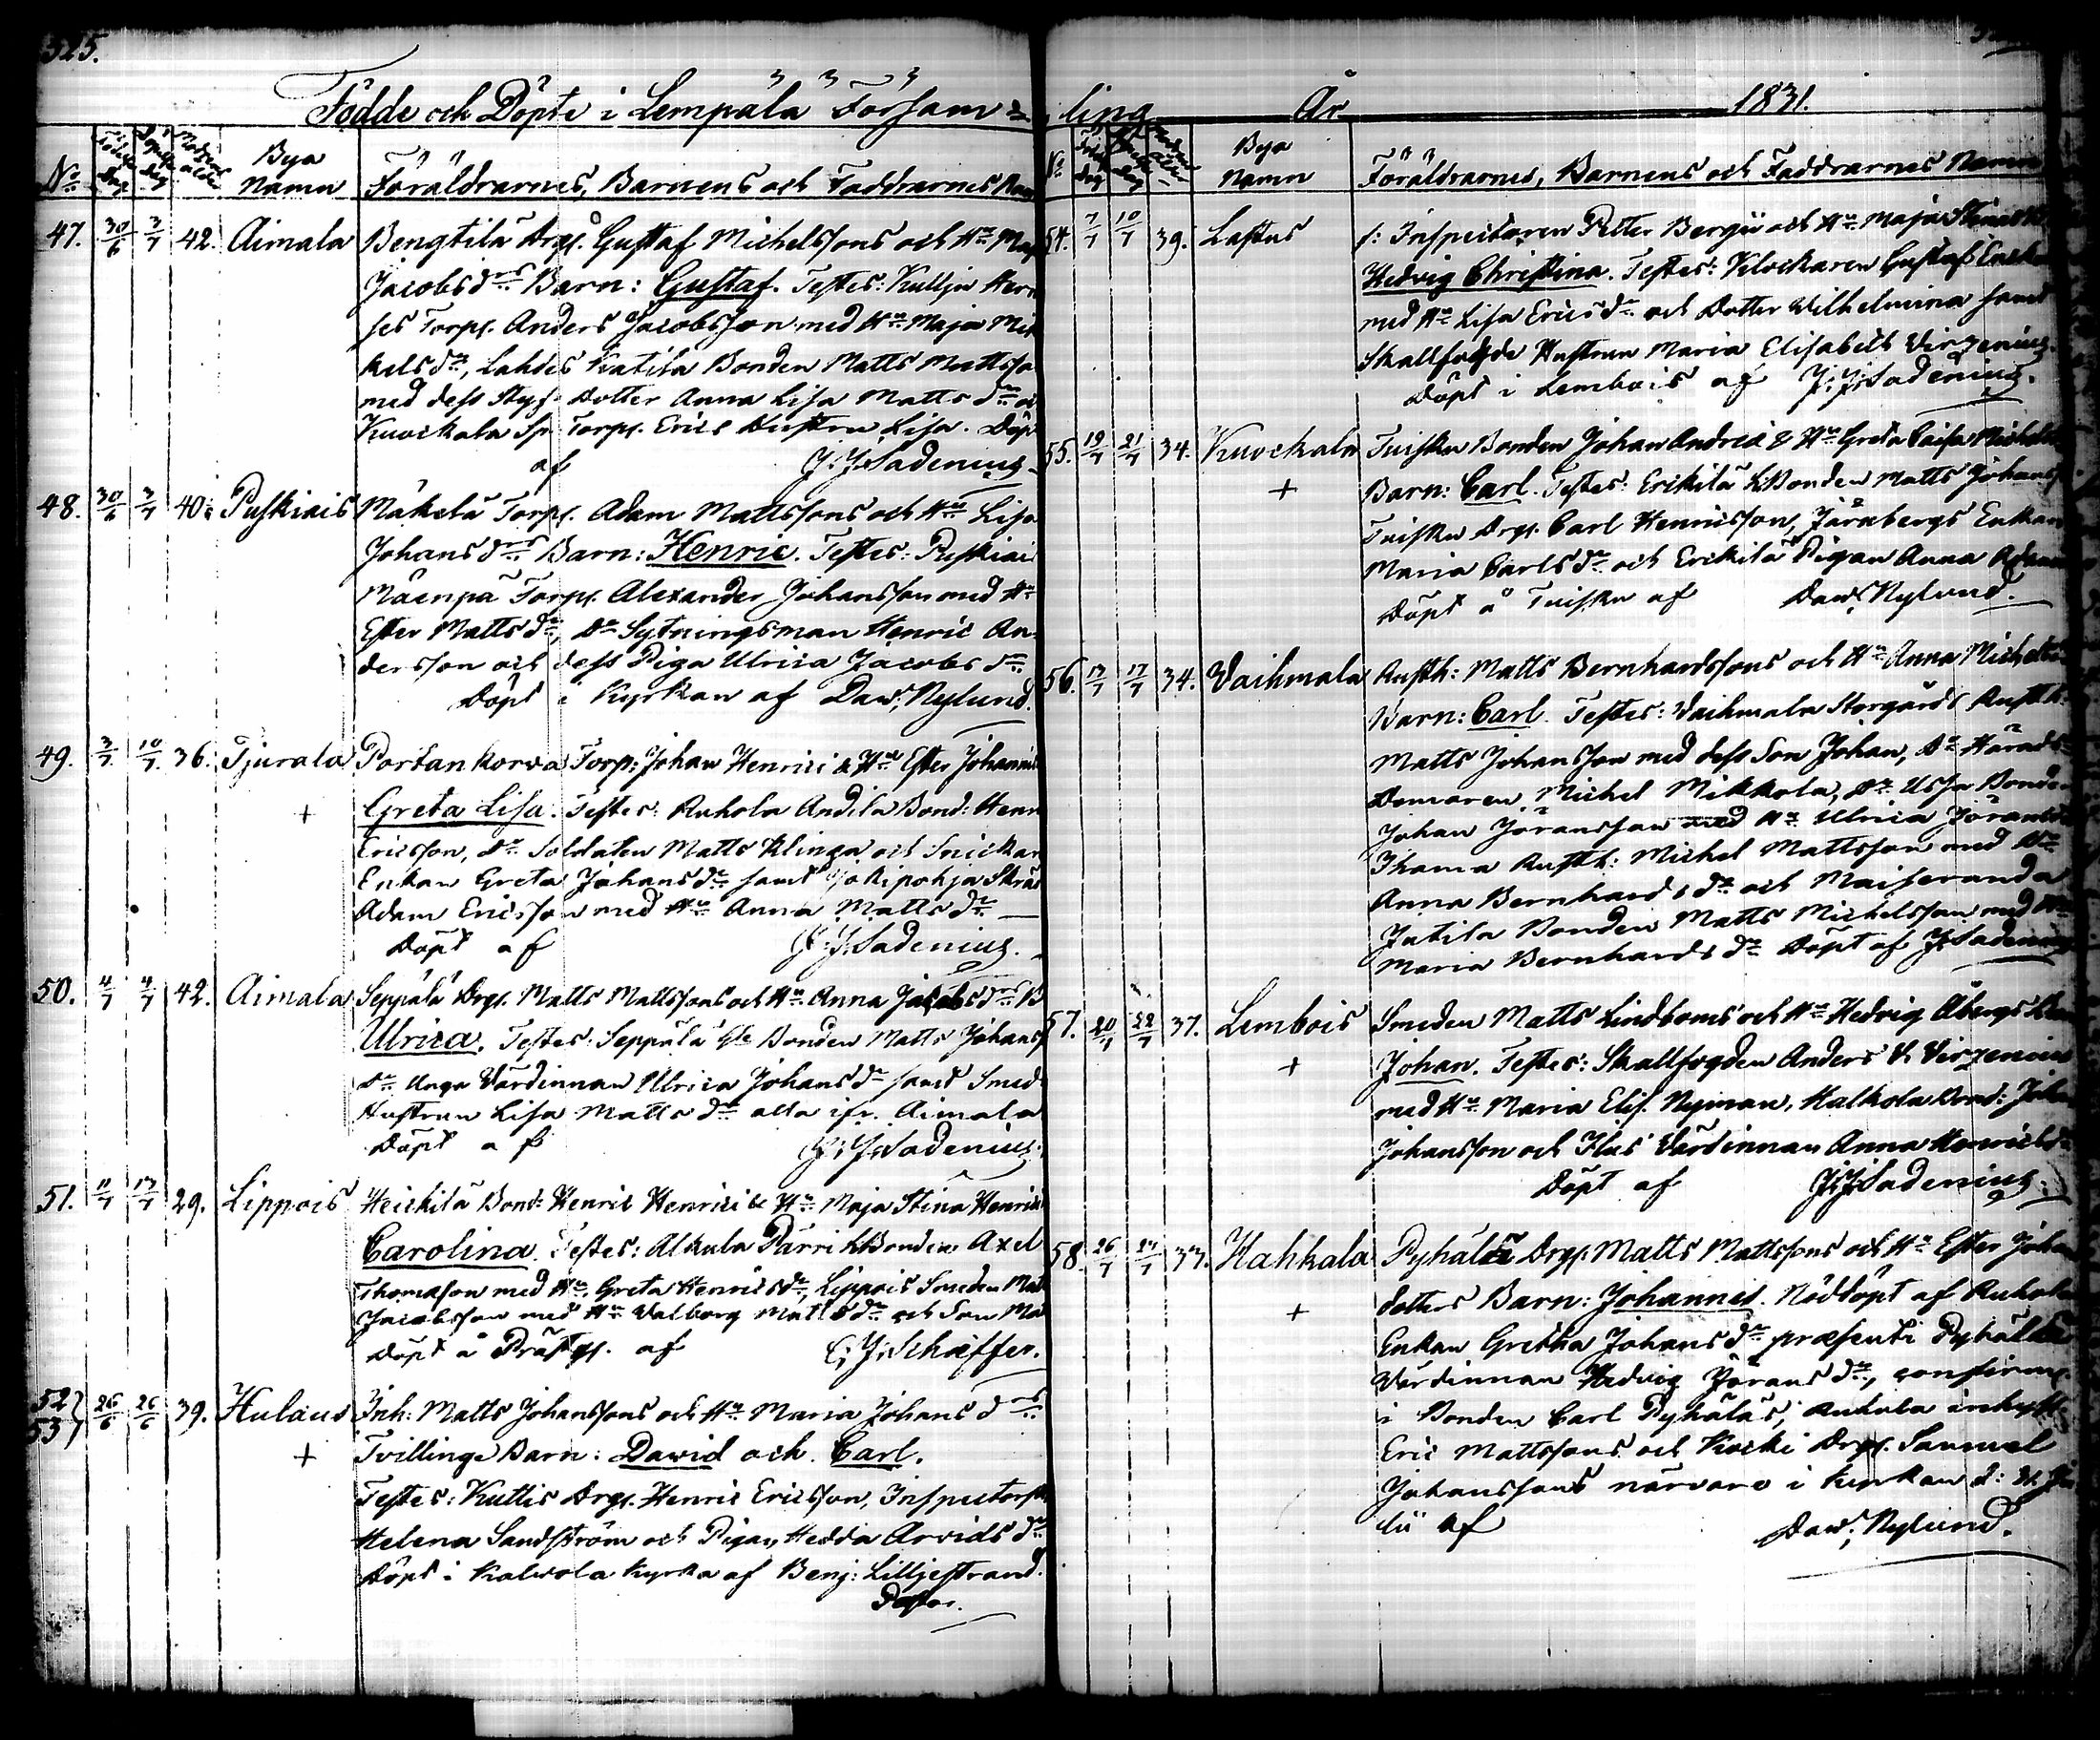 325.
Födde och Döpte i Lempälä Församling År 1831.
No Födelse dag Döpelse dag Modrens ålder Bya Namn Föräldrarnes, Barnens och Faddrarnes Nam
47. 30/6 3/7 42. Aimala Bengtilä Drgs. Gustaf Michelssons och Hu Maj
Jacobsdrs Barn: Gustaf. Testes: Kullju Her
ses Torps. Anders Jacobsson med Hu Maja Mic
kelsdr, Lahdes Katila Bonden Matts Mattsso
med dess Styf Dotter Anna Lisa Mattsdr oc
Kuockala Torps. Erics Hustru Lisa. Döpt
af J: J: Sadenius
48. 30/6 3/7 40. Puskiais Mäkelä Torps. Adam Mattssons och Hu Lisa
Johansdrs Barn: Henric. Testes: Puskiai
Mäenpä Torps. Alexander Johansson med Hu
Ester Mattsdr, Do Sytningsman Henric An-
dersson och dess Piga Ulrica Jacobsdr
Döpt i Kyrkan af Daw. Nylund.
49. 3/7 10/7 36. Tjurala Portankorva Torp: Johan Henrici & Hu Ester Johansd
+ Greta Lisa. Testes: Ruhola Andila Bond: Henr
Ericsson, Do Soldaten Matts Klinga och Snickar
Enkan Greta Johansdr samt Jokipohja Skräd
Adam Ericsson med Hu Anna Mattsdr
Döpt af J: J: Sadenius.
50. 4/7 4/7 42. Aimala Seppälä Drgs. Matts Mattssons och Hu Anna Jacobsdrs B
Ulrica. Testes: Seppälä Gle Bonden Matts Johanss
Do Unga Värdinnan Ulrica Johansdr samt Smed
Hustrun Lisa Mattsdr alla ifr. Aimala
Döpt af J: J: Sadenius.
51. 11/7 17/7 29. Lippois Heickilä Bond: Henric Henrici & Hu Maja Stina Henric
Carolina. Testes: Alkula Pärri LBonden Axel
Thomasson med Hu Greta Henricsdr, Lippois Smeden Mat
Jacobsson med Hu Walborg Mattsdr och Son Ma
Döpt å Prästgs. af C: J: Schæffer.
52 53 26/6 26/6 39. Hulaus Inh: Matts Johanssons och Hu Maria Johansdrs
+ Tvillinge Barn: Dawid och Carl.
Testes: Kuttis Drgs. Henric Ericsson, Inspectorsk
Helena Sandström och Pigan Hedda Arvidsdr
Döpt i Kalvola Kyrka af Benj: Lilljestrand.
Pastor.
No Bya Namn Föräldrarnes, Barnens och Faddrarnes Namn
54. 7/7 10/7 39. Lastus f: Inspectoren Petter Bergii och Hu Maja Stinas
Hedvig Christina. Testes: Klockaren Gustaf Enck
med Hu Lisa Ericsdr och Dotter Wilhelmina samt
Skallfogde Hustrun Maria Elisabeth Virzenius.
Döpt i Lembois af J: J: Sadenius.
55. 19/7 21/7 34. Kuockala Tuisku Bonden Johan Andreæ & Hu Greta Caisa Michels
+ Barn: Carl. Testes: Erickilä LBonden Matts Johanss
Tuisku Drgs. Carl Henricsson, Järnbergs Enkan
Maria Carlsdr och Erickilä Pigan Anna Adam
Döpt å Tuisku af Daw. Nylund.
56. 17/7 17/7 34. Vaihmala Rusth: Matts Bernhardssons och Hu Anna Michels
Barn: Carl. Testes: Vaihmala Storgårds Rusth:
Matts Johansson med dess Son Johan, Do Härads
Domaren Michel Mikkola, Do Ussa Bonden
Johan Jöransson med Hu Ulrica Jöransd
Ihama Rusth: Michel Mattsson med Hu
Anna Bernhardsdr och Maiseranda
Jutila Bonden Matts Michelsson med Hu
Maria Bernhardsdr Döpt af J: Sadenius
57. 20/7 22/7 37. Lembois Smeden Matts Lindboms och Hu Hedvig Åbergs
+ Johan. Testes: Skallfogden Anders Virzenius
med Hu Maria Elis. Nyman, Halkola Bond: Joha
Johansson och Ilus Värdinnan Anna Henricsd
Döpt af J: J: Sadenius.
58. 26/7 27/7 37. Hahkala Pyhälä Drgs. Matts Mattssons och Hu Ester Johan
+ dotters Barn: Johannes. Nöddöpt af Ruhola
Enkan Gretha Johansdr præsenti Pyhälä
Värdinnan Hedvig Jöransdr, confirm.
i Bonden Carl Pyhäläs, Ruhola inhyst
Eric Mattssons och Kocki Drgs. Samuel
Johanssons närvaro i Kyrkan
lii af Daw. Nylund.